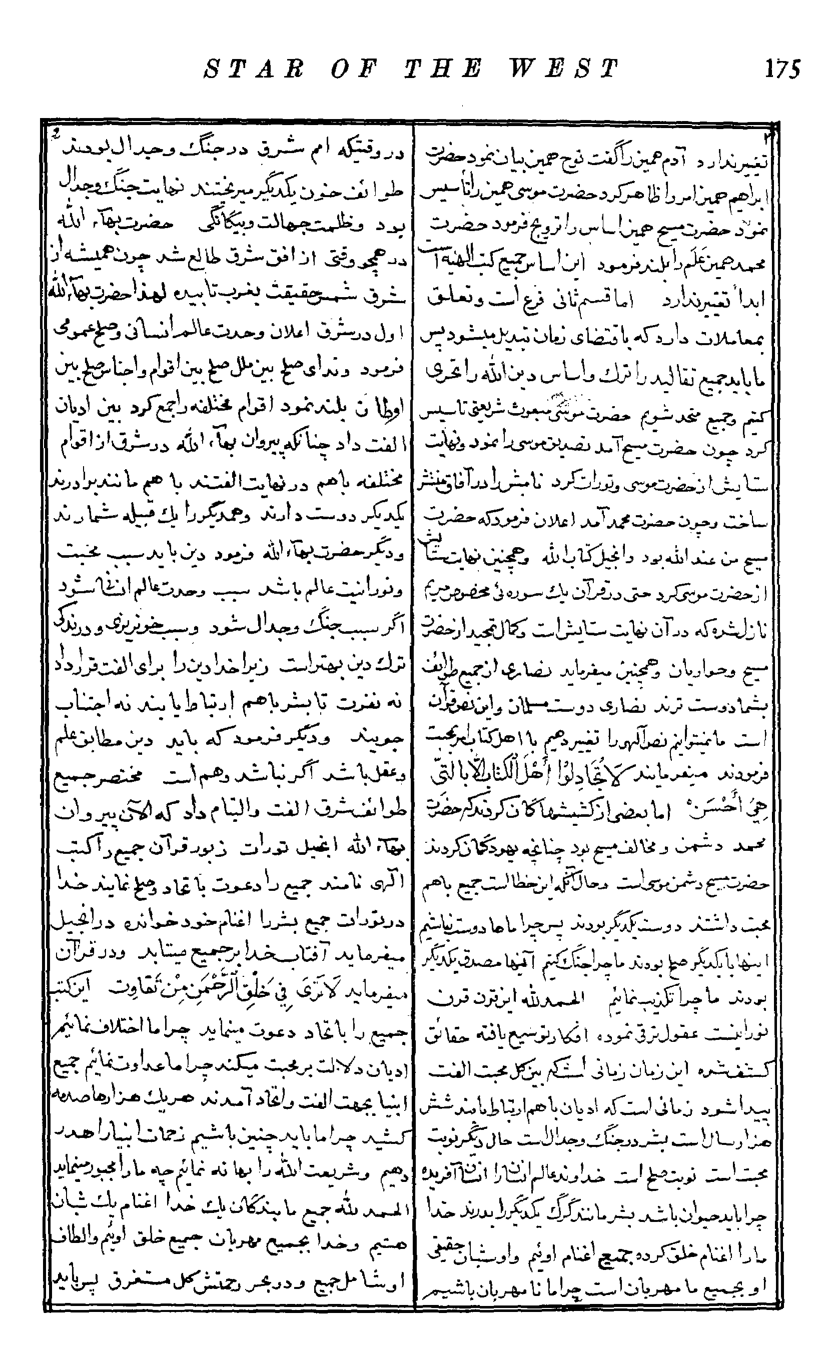 STAR OF THE WEST 175
تغییر ندارد آدم همین را گفت نوح همین بیان نمود حضرت
ابراهیم همین امر را ظاهر کرد حضرت موسی همین را تأسیس
نمود حضرت مسیح همین اساس را ترویج فرمود حضرت
محمد همین عَلَم را بلند فرمود این اساس جمیع کتب الهیه است
ابداً تغییر ندارد اما قسم ثانی فرع است و تعلق
بمعاملات دارد که باقتضای زمان تبدیل میشود پس
ما باید جمیع تقالید را ترک و اساس دین الله را تحری
کنیم و جمیع متحد شویم حضرت موسی مبعوث شریعتی تاسیس
کرد چون حضرت مسیح آمد تصدیق موسی را نمود و نهایت
ستایش از حضرت موسی و تورات کرد نامش را در آفاق منتشر
ساخت و چون حضرت محمد آمد اعلان فرمود که حضرت
مسیح من عند الله بود و انجیل کتاب الله و همچنین نهایت ستایش
از حضرت موسی کرد حتی در قرآن یک سوره ئی مخصوص مریم
نازل شده که در آن نهایت ستایش است و کمال تمجید از حضرت
مسیح و حواریان و همچنین میفرماید نصاری از جمیع طوایف
بشما دوست ترند نصاری دوست مسلمان و این نص قرآن
است ما نمیتوانیم نص آلهی را تغییر دهیم با اهل کتاب امر بمحبت
فرمودند میفرمایند لَا تُجَادِلُوا أَهْلَ الْکِتَابِ اِلَّا بِالَّتِی
هِیَ أَحْسَن اما بعضی از کشیشها گمان کردند که حضرت
محمد دشمن و مخالف مسیح بود چنانچه یهود گمان کردند
حضرت مسیح دشمن موسی است و حال آنکه این خطا است جمیع باهم
محبت داشتند دوست یکدیگر بودند پس چرا ماها دوست نباشیم
اینها با یکدیگر صلح بودند ما چرا جنگ کنیم آنها مصدق یکدیگر
بودند ما چرا تکذیب نمائیم الحمد لله این قرن قرن
نورانیت عقول ترقی نموده افکار توسیع یافته حقائق
کشف شده این زمان زمانی است که بین کل محبت الفت
پیدا شود زمانی است که ادیان با هم ارتباط یابند شش
هزار سال است بشر در جنگ و جدال است حال دیگر نوبت
محبت است نوبت صلح است خداوند عالم انسان را انسان آفریده
چرا باید حیوان باشد بشر مانند گرگ یکدیگر را بدرند خدا
ما را اغنام خلق کرده جمیع اغنام اوئیم و او شبان حقیقی
او بجمیع ما مهربان است چرا ما نا مهربان باشیم
در وقتیکه امم شرق در جنگ و جدال بودند
طوائف خون یکدیگر میریختند نهایت جنگ و جدال
بود و ظلمت جهالت و بیگانگی حضرت بهاء الله
در همچو وقتی از افق شرق طالع شد چون همیشه از
شرق شمس حقیقت بغرب تابیده لهذا حضرت بهاء الله
اول در شرق اعلان وحدت عالم انسانی و صلح عمومی
فرمود و ندای صلح بین ملل صلح بین اقوام و اجناس صلح بین
اوطان بلند نمود اقوام مختلفه را جمع کرد بین ادیان
الفت داد چنانکه پیروان بهاء الله در شرق از اقوام
مختلفه باهم در نهایت الفتند با هم مانند برادرند
یکدیگر دوست دارند و همدیگر را یک قبیله شمارند
و دیگر حضرت بهاء الله فرمود دین باید سبب محبت
و نورانیت عالم باشد سبب وحدت عالم انسانی شود
اگر سبب جنگ و جدال شود و سبب خونریزی و درندگی
ترک دین بهتر است زیرا خدا دین را برای الفت قرار داد
نه نفرت تا بشر باهم ارتباط یابند نه اجتناب
جویند و دیگر فرمود که باید دین مطابق علم
و عقل باشد اگر نباشد وهم است مختصر جمیع
طوائف شرق را الفت و التیام داد که الآن پیروان
بهاء الله انجیل تورات زبور قرآن جمیع را کتب
الهی نامند جمیع را دعوت باتحاد و صلح نمایند خدا
در تورات جمیع بشر را اغنام خود خوانده در انجیل
میفرماید آفتاب خدا بر جمیع میتابد و در قرآن
میفرماید لَا تَرَی فِی خَلْقِ الرَّحْمٰنِ مِنْ تَفَاوُت این کتب
جمیع را باتحاد دعوت مینماید چرا ما اختلاف نمائیم
ادیان دلالت بر محبت میکند چرا ما عداوت نمائیم جمیع
انبیا بجهت الفت و اتحاد آمدند هر یک هزارها صدمه
کشید چرا ما باید چنین باشیم زحمات انبیا را هدر
دهیم و شریعت الله را بهانه نمائیم چه ما را مجبور مینماید
الحمد لله جمیع ما بندگان یک خدا اغنام یک شبان
هستیم و خدا بجمیع مهربان جمیع خلق اوئیم و الطاف
او شامل جمیع و در بحر رحمتش کل مستغرق پس باید